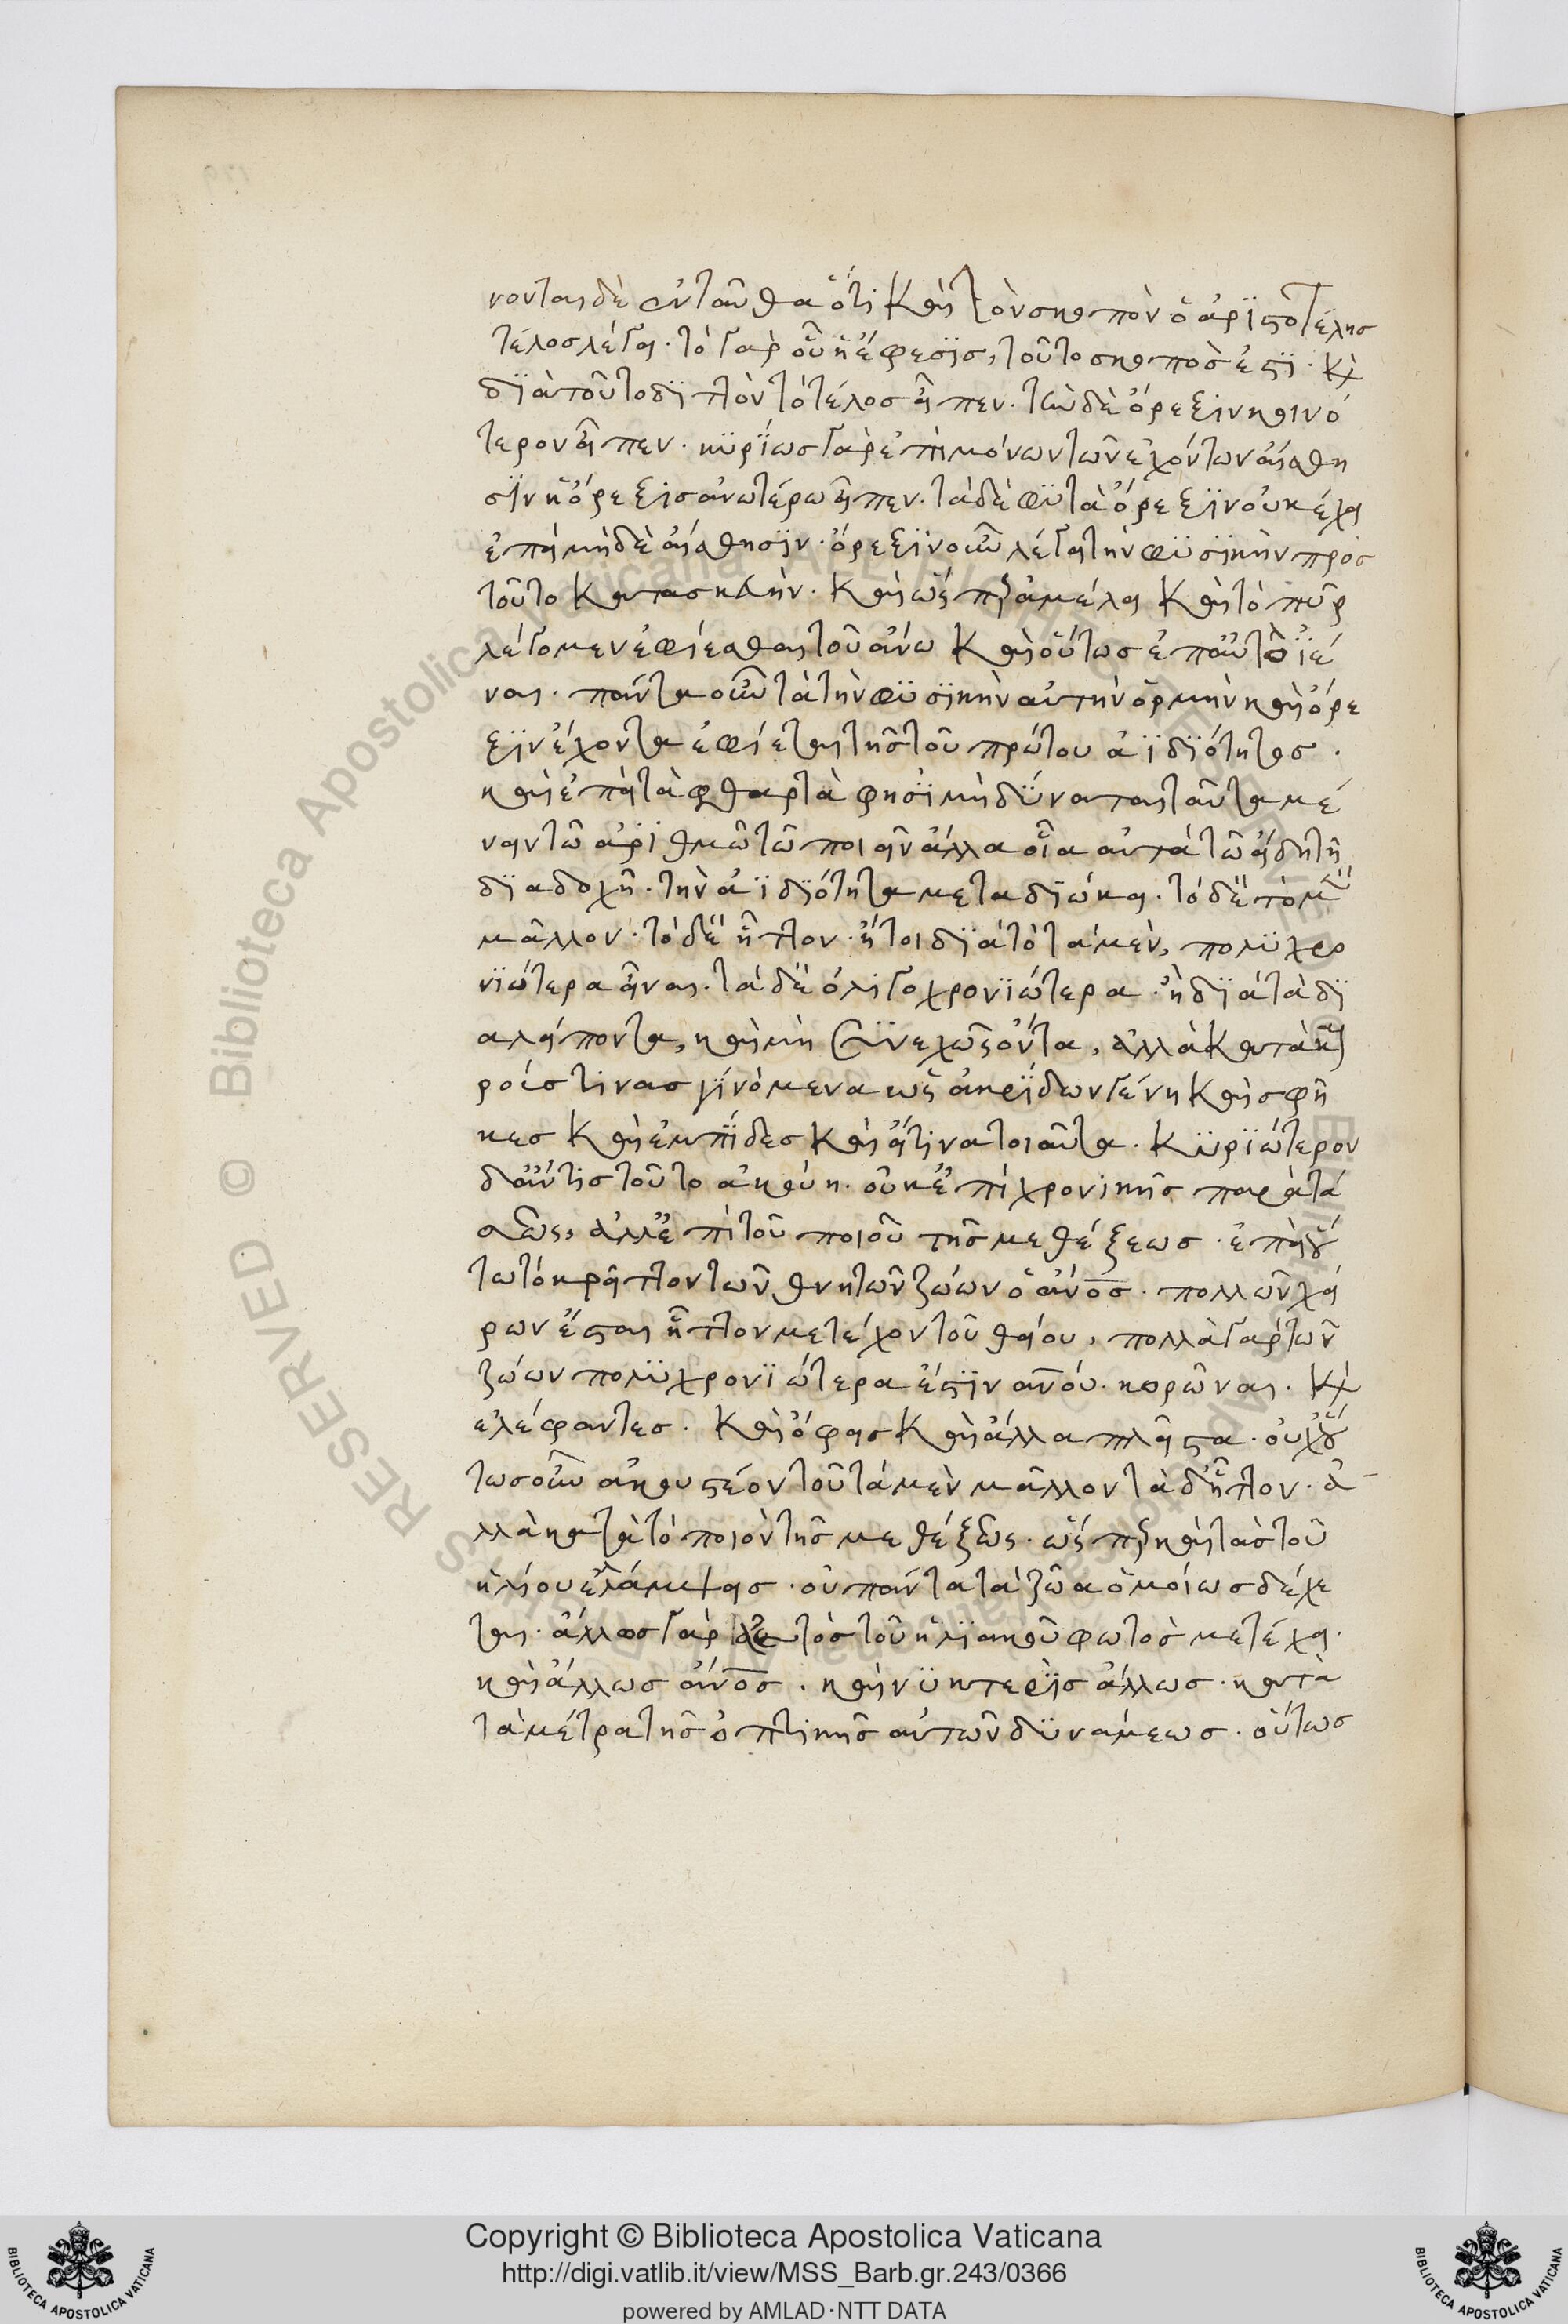 νονται δὲ ἐνταῦθα ὅτι καὶ τὸν σκοπὸν ὁ ἀριστοτέλης
τέλος λέγει. τὸ γὰρ οὗ ἡ ἔφεσις, τοῦτο σκοπὸς ἐστι. κὶ
διὰ τοῦτο διττὸν τὸ τέλος εἶπεν. τὴν δὲ ὄρεξιν κοινό
τερον εἶπεν. κυρίως γὰρ ἐπὶ μόνων τῶν ἐχόντων αἴσθη
σιν ἡ ὄρεξις ἀνωτέρω εἶπεν. τὰ δὲ φυτὰ ὄρεξιν οὐκ ἔχει
ἐπεὶ μὴδὲ αἴσθησιν. ὄρεξιν οὖν λέγει τὴν φυσικὴν πρὸς
τοῦτο κατασκευήν. καὶ ὥσπερ ἀμέλει καὶ τὸ πῦρ
λέγομεν ἐφίεσθαι τοῦ ἄνω καὶ οὕτως ἐπ' αὐτὸ ἰέ
ναι. πάντα οὖν τὰ τὴν φυσικὴν αὐτὴν ὁρμὴν καὶ ὄρε
ξιν ἔχοντα ἐφίεται τῆς τοῦ πρώτου ἀϊδιότητος.
καὶ ἐπεὶ τὰ φθαρτὰ φησὶ μὴ δύναται ταῦτα μέ
νειν τῷ ἀριθμῷ τῷ ποιεῖν ἄλλα οἷα αὐτὰ τῷ εἴδει τῇ
διαδοχῇ. τὴν ἀϊδιότητα μεταδιώκει. τὸ δὲ τὸ μὲν
μᾶλλον. τὸ δὲ ἧττον. ἤτοι διὰ τὸ τὰ μὲν, πολυχρο
νιώτερα εἶναι. τὰ δὲ ὀλιγοχρονιώτερα. ἢ διὰ τὰ δι
αλείποντα, καὶ μὴ συνεχῶς ὄντα, ἀλλὰ κατὰ και
ροίς τινας γινόμενα ὡς ἀκρίδων γένη καὶ σφῆ
κες καὶ ἐμπίδες καὶ εἴ τινα τοιαῦτα. κυριώτερον
δ' ἄν τις τοῦτο ἀκούῃ. οὐκ ἐπὶ χρονικῆς παρατά
σεως, ἀλλ' ἐπὶ τοῦ ποιοῦ τῆς μεθέξεως. ἐπεὶ οὕ
τω τὸ κρεῖττον τῶν θνητῶν ζώων ὁ ἄνος. πολλῶν χει
ρων ἔσται ἧττον μετέχον τοῦ θείου, πολλὰ γὰρ τῶν
ζώων πολυχρονιώτερα ἐστὶν ανού. κορῶναι. κὶ
ἐλέφαντες. καὶ ὄφεις καὶ ἄλλα πλεῖστα. οὐχ οὕ
τως οὖν ἀκουστέον τοῦ τὰ μὲν μᾶλλον τὰ δ' ἧττον. ἀ
λλὰ κατὰ τὸ ποιὸν τῆς μεθέξεως. ὥσπερ καὶ τὰς τοῦ
ἡλίου ἐλλάμψεις. οὐ πάντα τὰ ζῶα ὁμοίως δέχε
ται. ἄλλως γὰρ ἀετὸς τοῦ ἡλιακοῦ φωτὸς μετέχει.
καὶ ἄλλως ἄνος. καὶ νυκτερὶς ἄλλως. κατὰ
τὰ μέτρα τῆς ὀπτικῆς αὐτῶν δυνάμεως. οὕτως
Copyright © Biblioteca Apostolica Vaticana
http://digi.vatlib.it/view/MSS_Barb.gr.243/0366
powered by AMLAD·NTT DATA